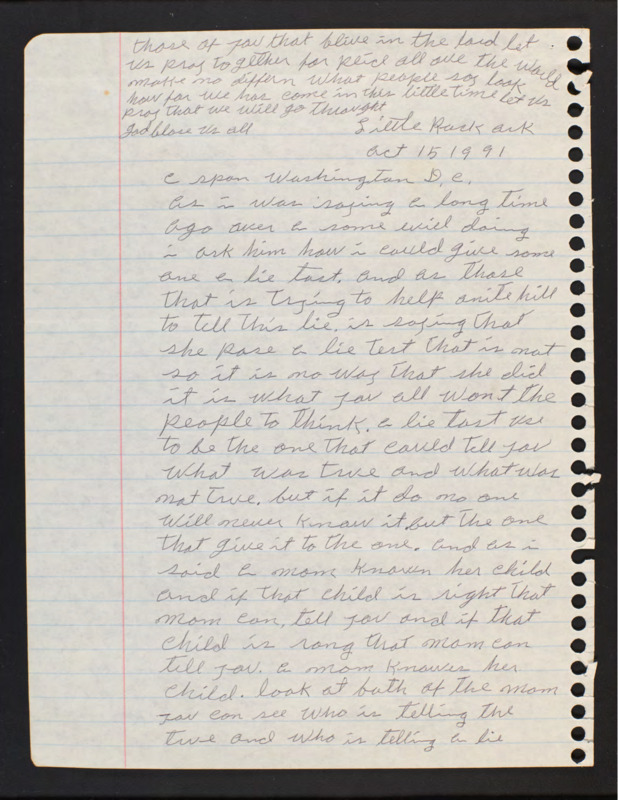 those of you that blive in the lord let
us pray together for peice all ove the world
make no differn what people say look
how far we has come in this little time let us
pray that we will go throught
God bless us all
Little Rock ark
oct 15 1991
c span Washington D.C.
as i was saying a long time
ago over a some evil doing
i ask him how i could give some
one a lie tast. and as those
that is trying to help anite hill
to tell this lie. is saying that
she pase a lie test that is not
so it is no way that she did
it is what you all won't the
people to think. a lie tast use
to be the one that could tell you
what was true and what was
not true. but if it do no one
will never know it but the one
that give it to the one. and as i
said a mom known her child
and if that child is right that
mom can, tell you and if that
child is rong that mom can
tell you. a mom knowes her
child. look at both of the mom
you can see who is telling the
true and who is telling a lie